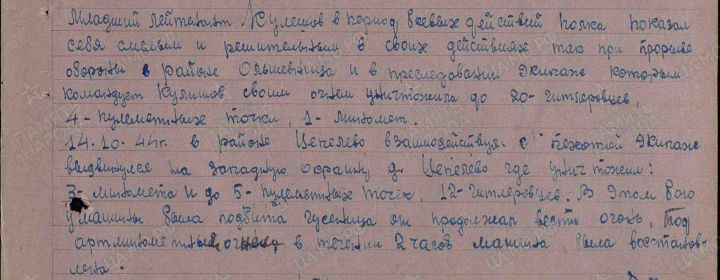 Младший лейтенант Кулешов в период боевых действий полка показал
себя смелым и решительным в своих действиях так при прорыве
обороны в районе Ольшевница и в преследовании экипаж которым
командует Кулишов своим огнем уничтожила до 20-гитлеровцев,
4-пулеметных точки, 1-миномет.
14.10.44г. в районе Цепелево взаимодействуя с пехотой экипаж
выдвинулся на западную окраину д. Цепелево где уничтожил:
3-миномета и до 5-пулеметных точек, 12-гитлеровцев. В этом бою
у машины была подбита гусеница он продолжал вести огонь, Под
артминометным огнем в течении 2 часов машина была восстанов-
лена.